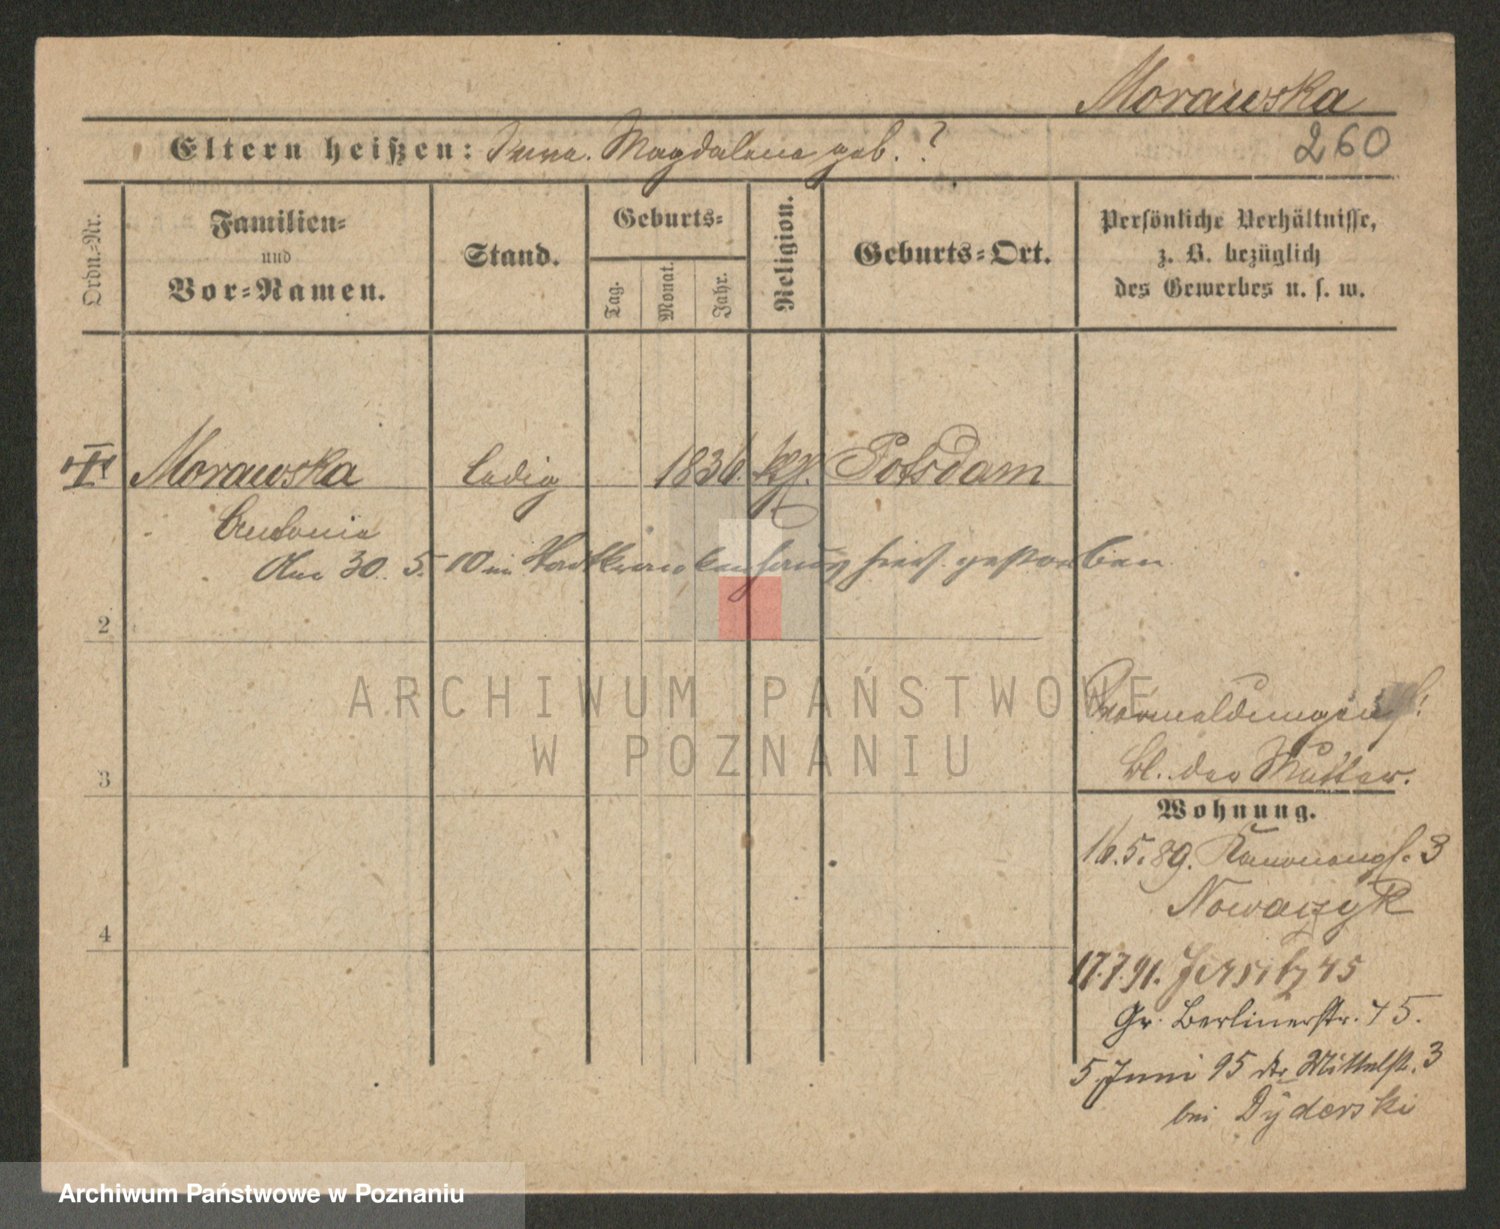 Morawska
260
Eltern heißen: Anna. Magdalena geb. ?
Ordn.-Nr.
Familien-
und
Vor-Namen.
Stand.
Geburts-
Tag.
Monat.
Jahr.
Religion.
Geburts-Ort.
Persönliche Verhältnisse,
z. B. bezüglich
des Gewerbes u. s. w.
Morawska ledig 1836. Potsdam
Antonie
Am 30. 5. 10 im Stadtkrankenhaus hier gestorben
2
3
4
ARCHIWUM PAŃSTWOWE
W POZNANIU
Vormeldungen
Bl. der Mutter.
Wohnung.
16.5.89. Kanonengs. 3
Nowaczyk
17.7.91. Jersitz 45
Gr. Berlinerstr. 45.
5 Juni 95 Mittelstr. 3
bei Dyderski
Archiwum Państwowe w Poznaniu